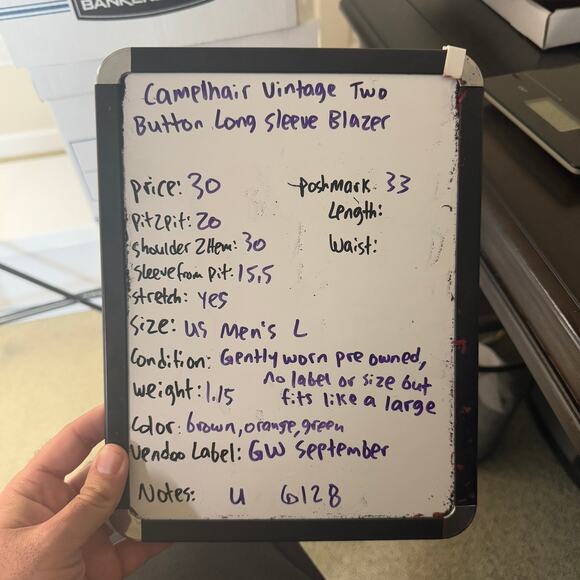 BANKERS
Camelhair Vintage Two
Button Long Sleeve Blazer
price: 30 poshmark: 33
pit2pit: 20 Length:
shoulder 2 Hem: 30 Waist:
sleeve from pit: 15.5
stretch: yes
Size: US Men's L
Condition: Gently worn pre owned,
no label or size but
weight: 1.15 fits like a large
Color: brown, orange, green
Vendoo Label: GW September
Notes: U 6128